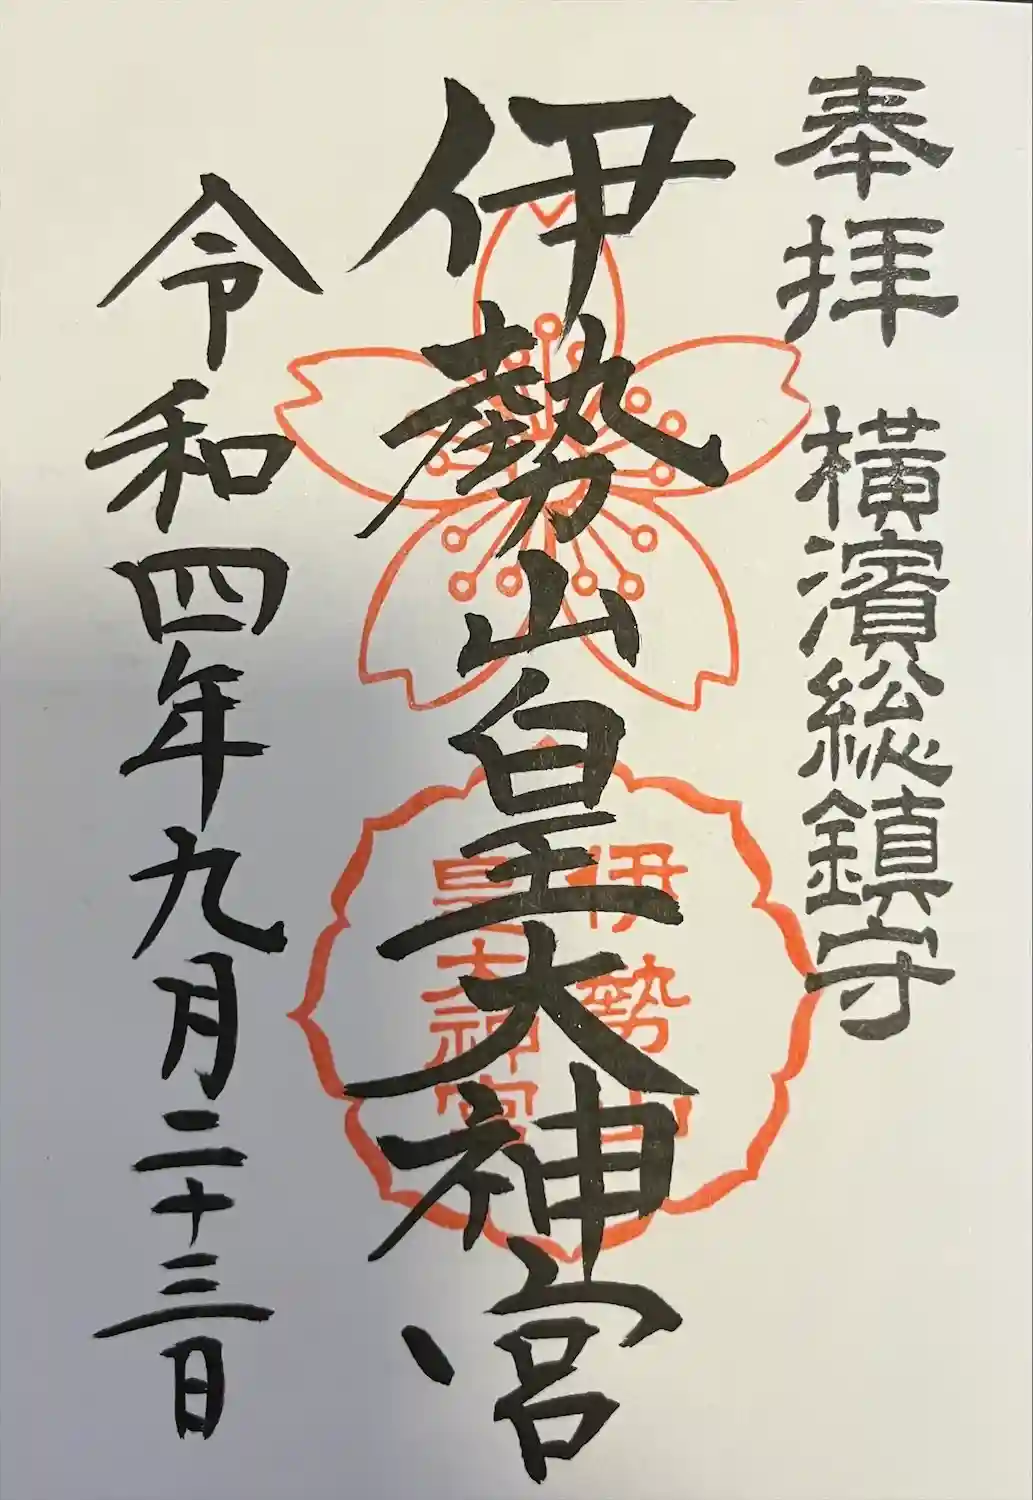 奉拝 横濱総鎮守
伊勢山皇大神宮
伊勢山
皇大神宮
令和四年九月二十三日